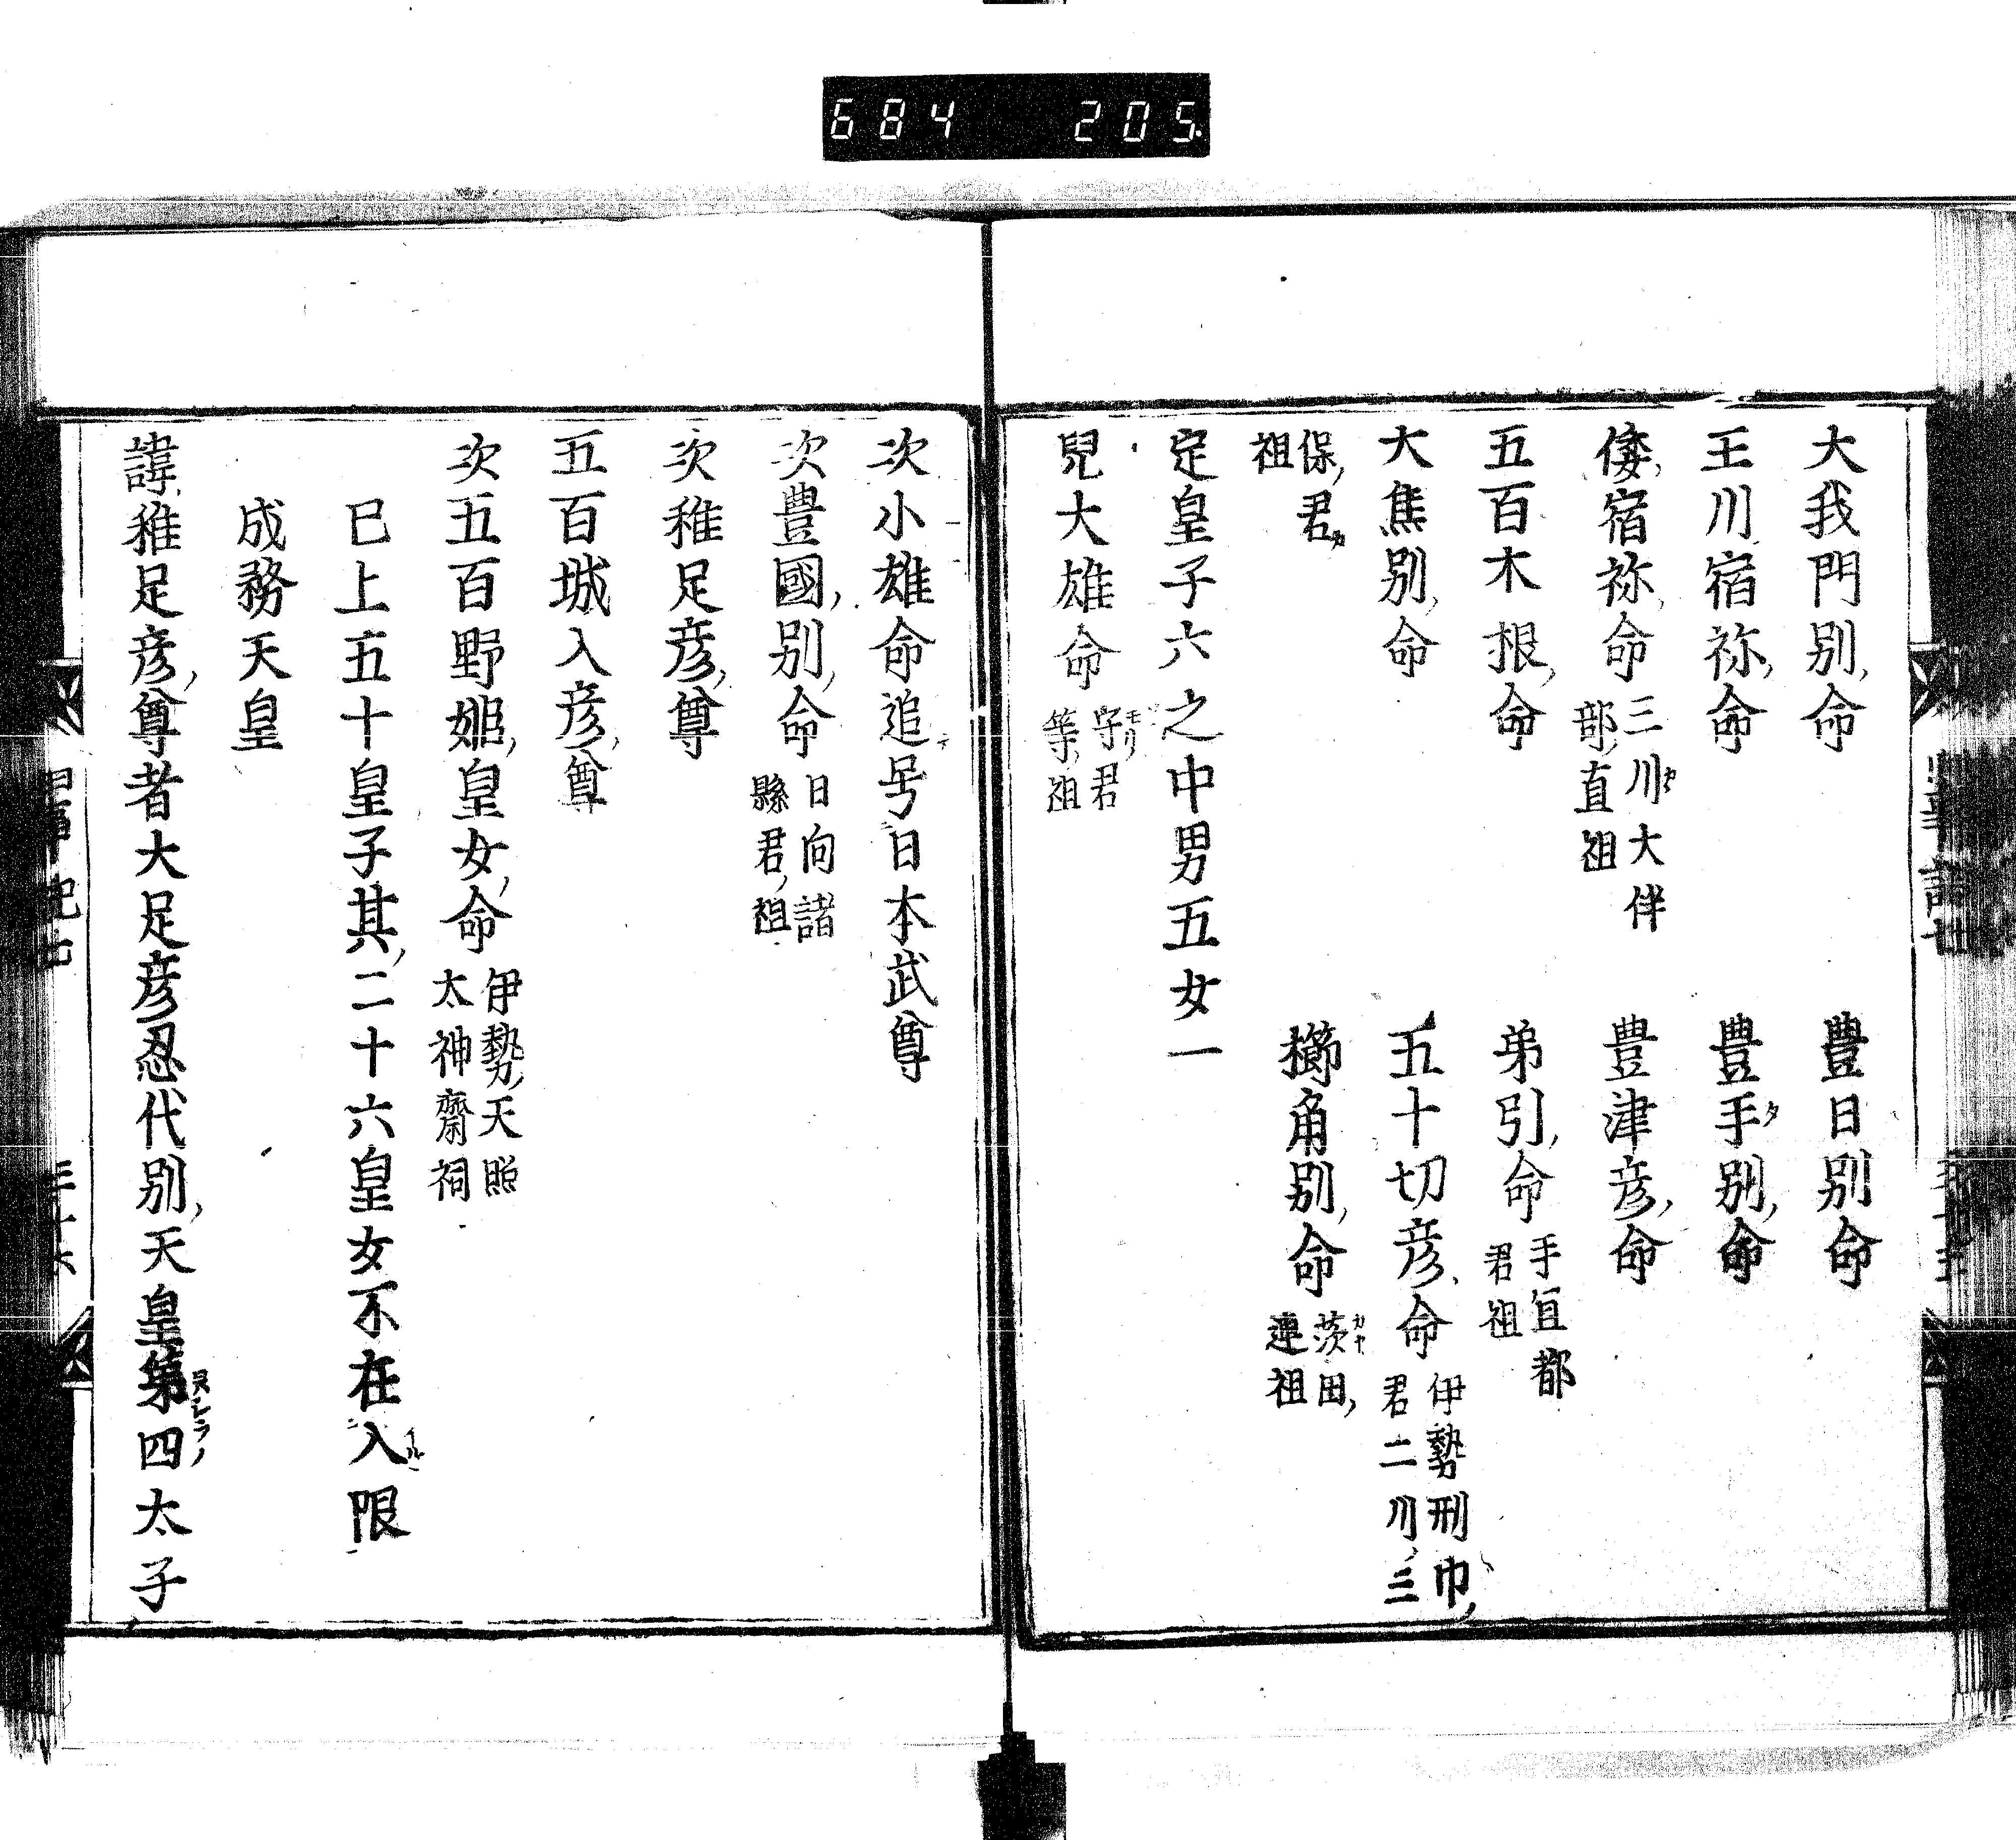 684 205
大我門別命 豊日別命
王川宿祢命 豊手別命
倭宿祢命 三川大伴部直祖 豊津彦命
五百木根命 弟引命 手宜都君祖
大焦別命 五十切彦命 伊勢刑巾君二川三
保君祖 櫛角別命 茨田連祖
定皇子六之中男五女一
兒大雄命 守君等祖
次小雄命追号日本武尊
次豊國別命 日向諸縣君祖
次稚足彦尊
五百城入彦尊
次五百野姫皇女命 伊勢天照太神齋祠
巳上五十皇子其二十六皇女不在入限
成務天皇
諱稚足彦尊者大足彦忍代別天皇第四太子